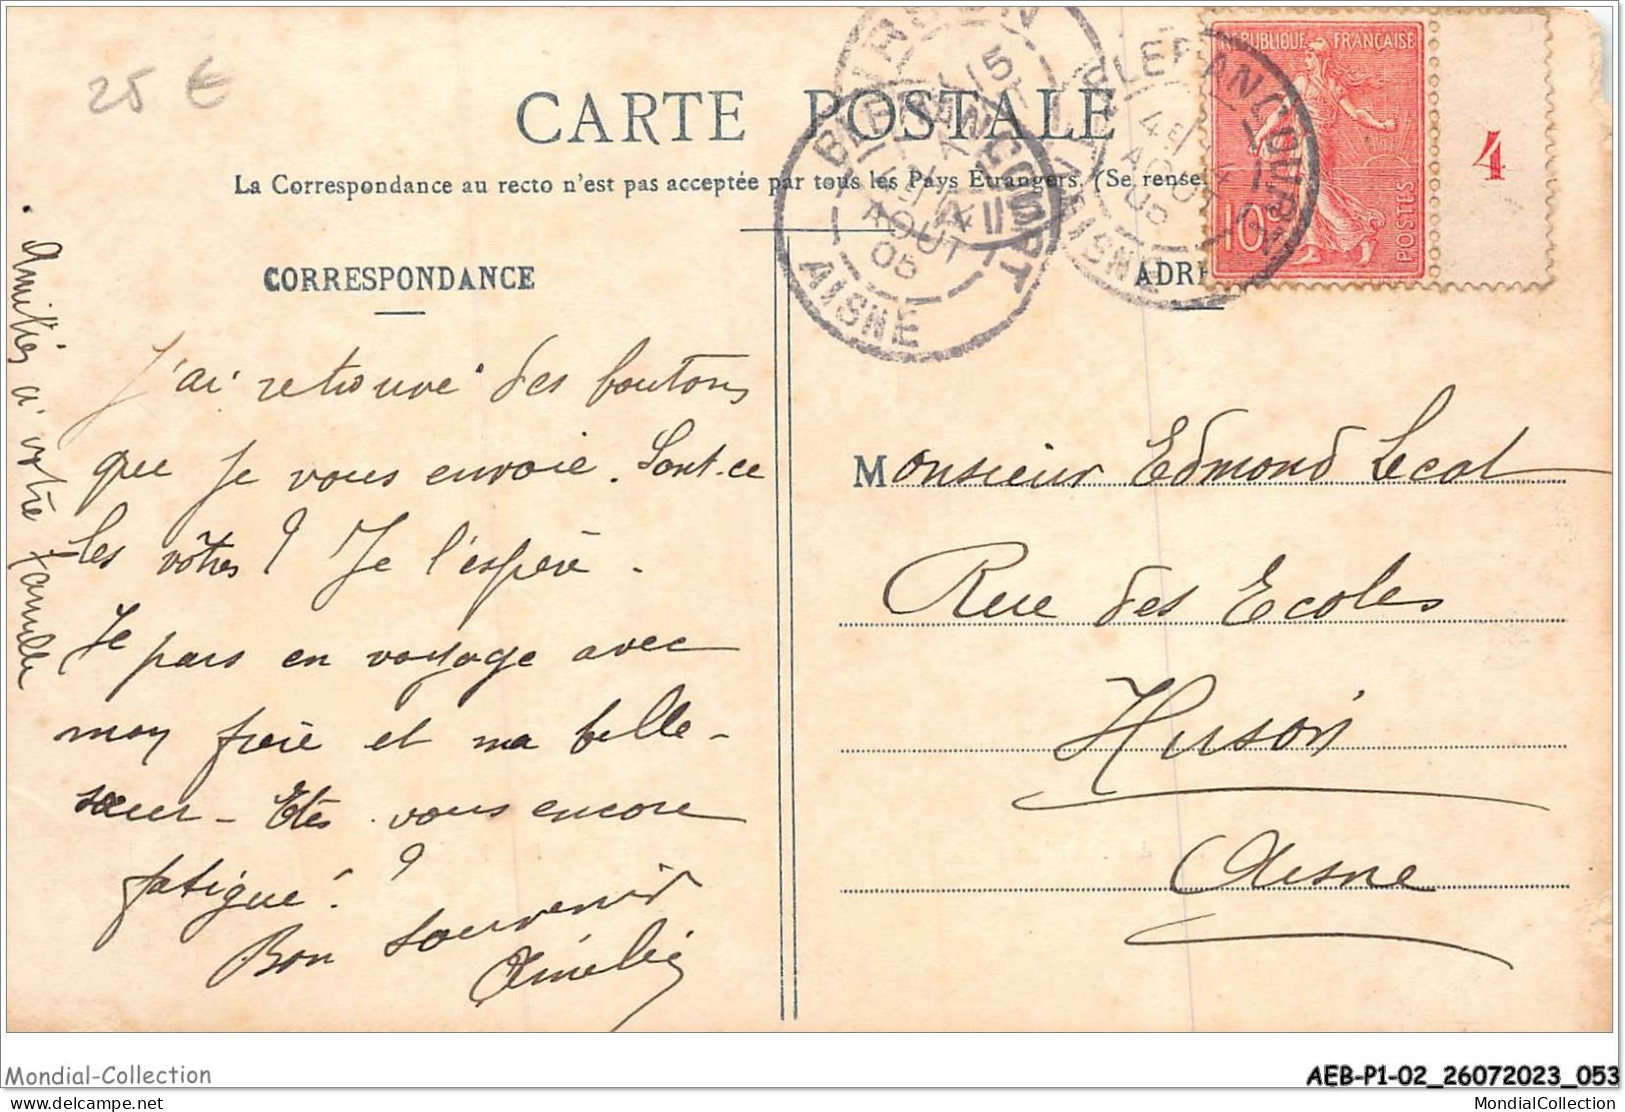 25 €
CARTE POSTALE
La Correspondance au recto n'est pas acceptée par tous les Pays Etrangers. (Se rense
CORRESPONDANCE
ADRE
REPUBLIQUE FRANÇAISE
10c
POSTES
4
BLERANCOURT
AOUT
05
AISNE
BLERANCOURT
AOUT
05
AISNE
Amitiés à votre famille
J'ai retrouvé des boutons
que je vous envoie. Sont-ce
les vôtres ? Je l'espère.
Je pars en voyage avec
mon frère et ma belle-
sœur - Etes vous encore
fatigué ?
Bon souvenir
Amélie
Monsieur Edmond Lecat
Rue des Ecoles
Aisne
Mondial-Collection
AEB-P1-02_26072023_053
delcampe.net
MondialCollection